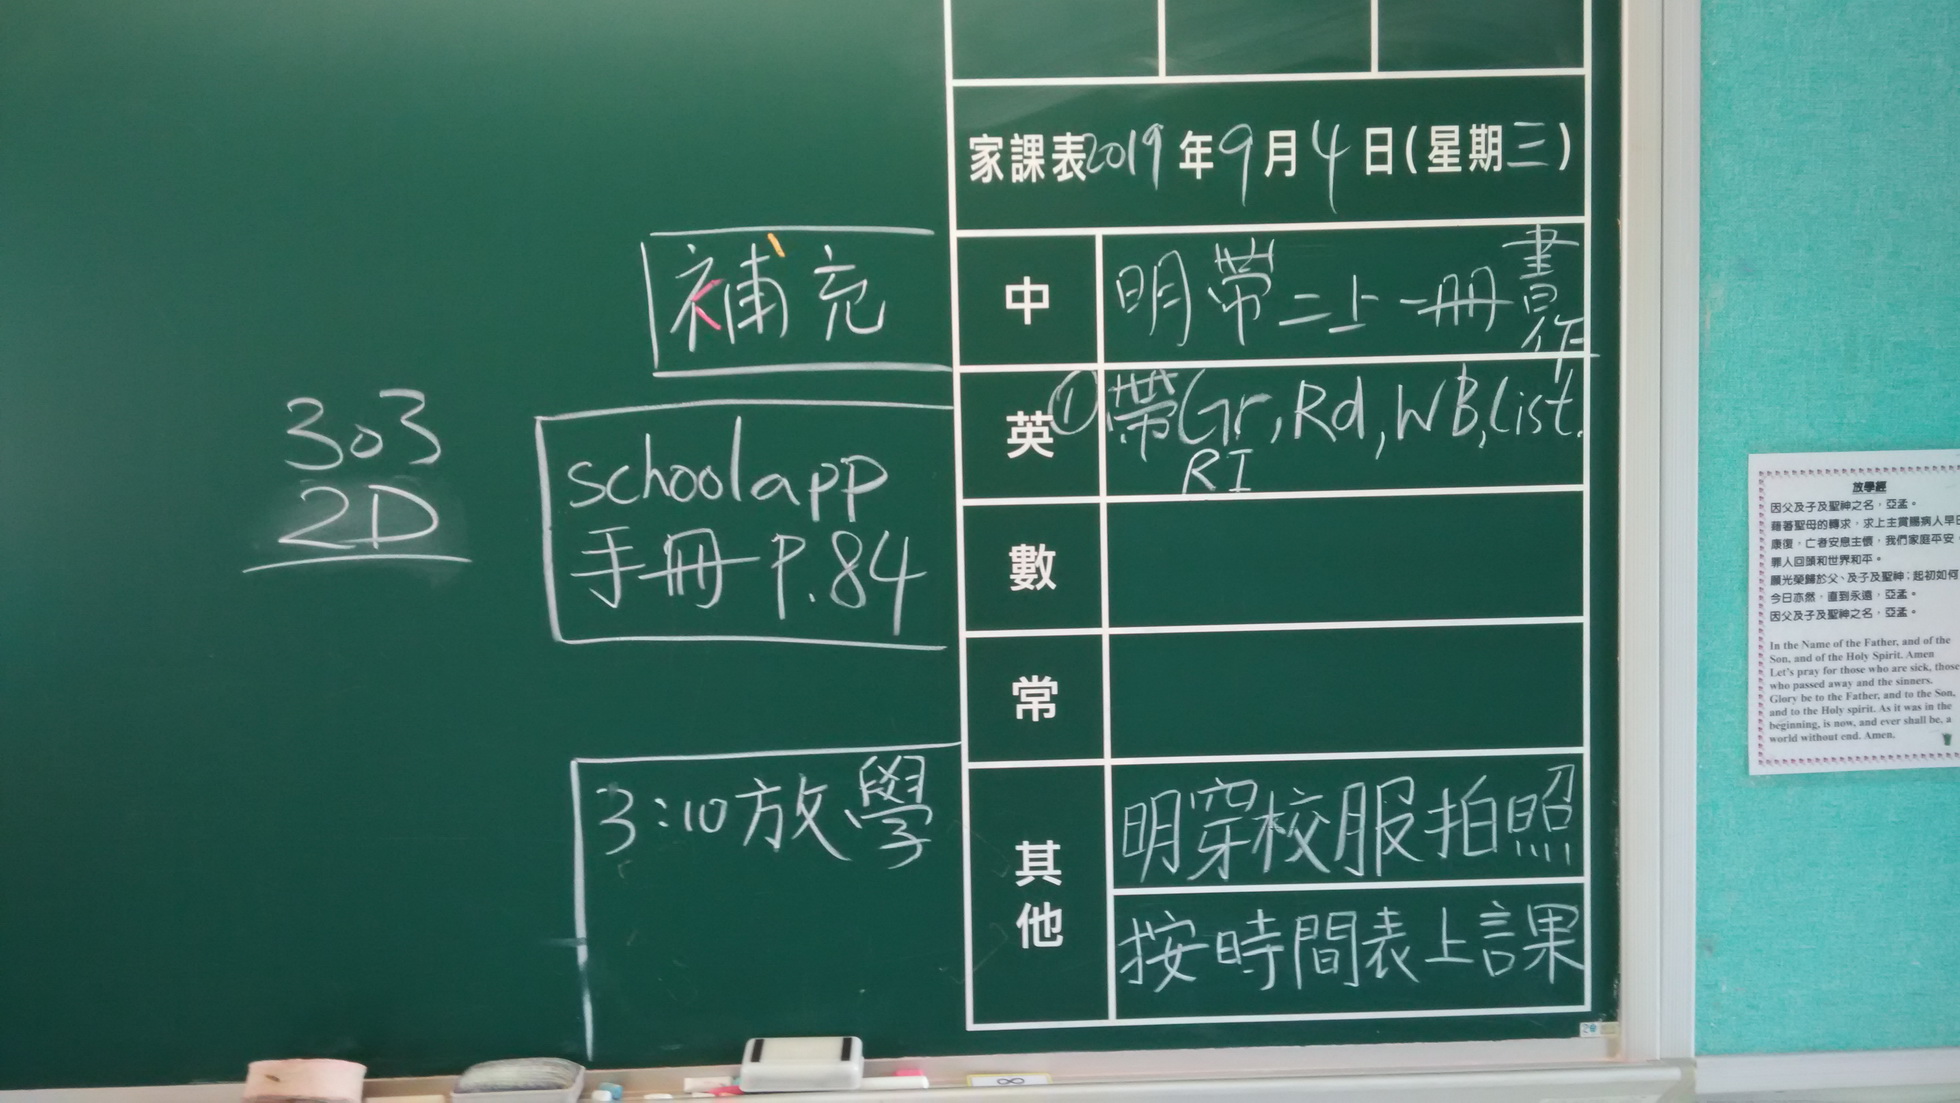 家課表2019年9月4日(星期三)
中 明帶二上一冊書
作
英 ①帶Gr, Rd, WB, List.
RI
數
常
其他 明穿校服拍照
按時間表上課
補充
schoolapp
手冊 P.84
3:10放學
303
2D
放學經
因父及子及聖神之名,亞孟。
藉著聖母的轉求,求上主賞賜病人早日
康復,亡者安息主懷,我們家庭平安,
罪人回頭和世界和平。
願光榮歸於父、及子及聖神;起初如何
今日亦然,直到永遠,亞孟。
因父及子及聖神之名,亞孟。
In the Name of the Father, and of the
Son, and of the Holy Spirit. Amen
Let's pray for those who are sick, those
who passed away and the sinners.
Glory be to the Father, and to the Son,
and to the Holy spirit. As it was in the
beginning, is now, and ever shall be, a
world without end. Amen.